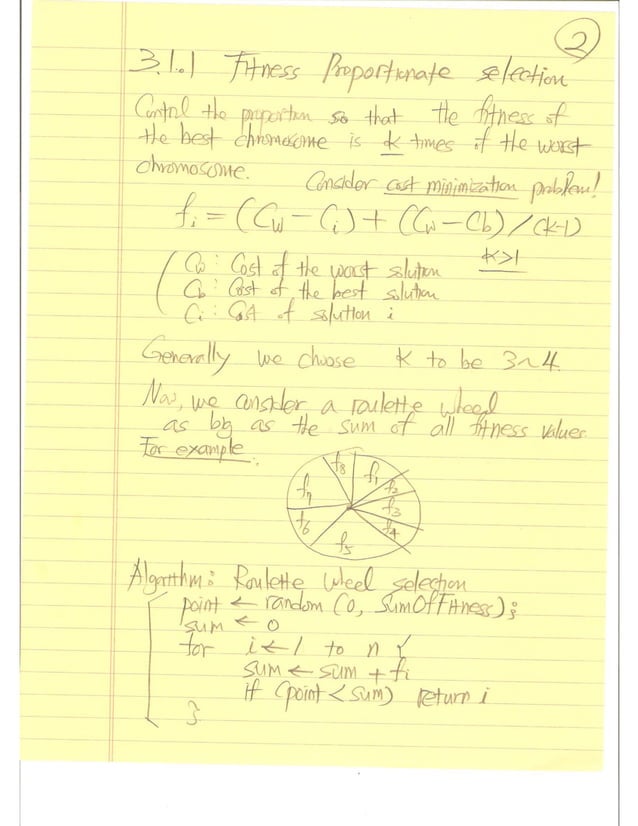 2
3.1.1 Fitness Proportionate selection
Control the proportion so that the fitness of
the best chromosome is K times of the worst
chromosome.
Consider cost minimization problem!
fi = (Cw - Ci) + (Cw - Cb) / (K-1)
K>1
Cw : Cost of the worst solution
Cb : Cost of the best solution
Ci : Cost of solution i
Generally we choose K to be 3~4.
Now, we consider a roulette wheel
as big as the sum of all fitness values.
For example:
f8 f1
f7 f2
f3
f6 f4
f5
Algorithm: Roulette Wheel selection
point ← random (0, SumOfFitness);
sum ← 0
for i ← 1 to n {
sum ← sum + fi
if (point < sum) return i
}